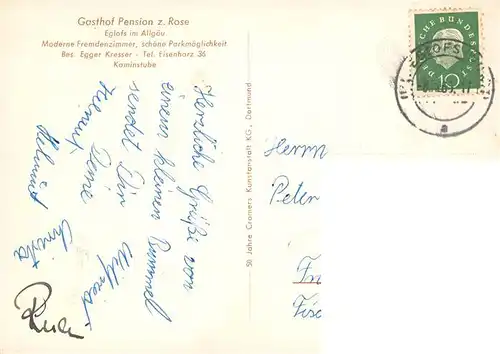 Gasthof Pension z. Rose
Eglofs im Allgäu
Moderne Fremdenzimmer, schöne Parkmöglichkeit
Bes. Egger Kresser - Tel. Eisenharz 36
Kaminstube
Herzliche Grüße von
einem kleinen Bummel
sendet Dir Deine
Helmut
Christa
50 Jahre Cramers Kunstanstalt KG., Dortmund
DEUTSCHE BUNDESPOST
10
EGLOFS
a
Herrn
Peter